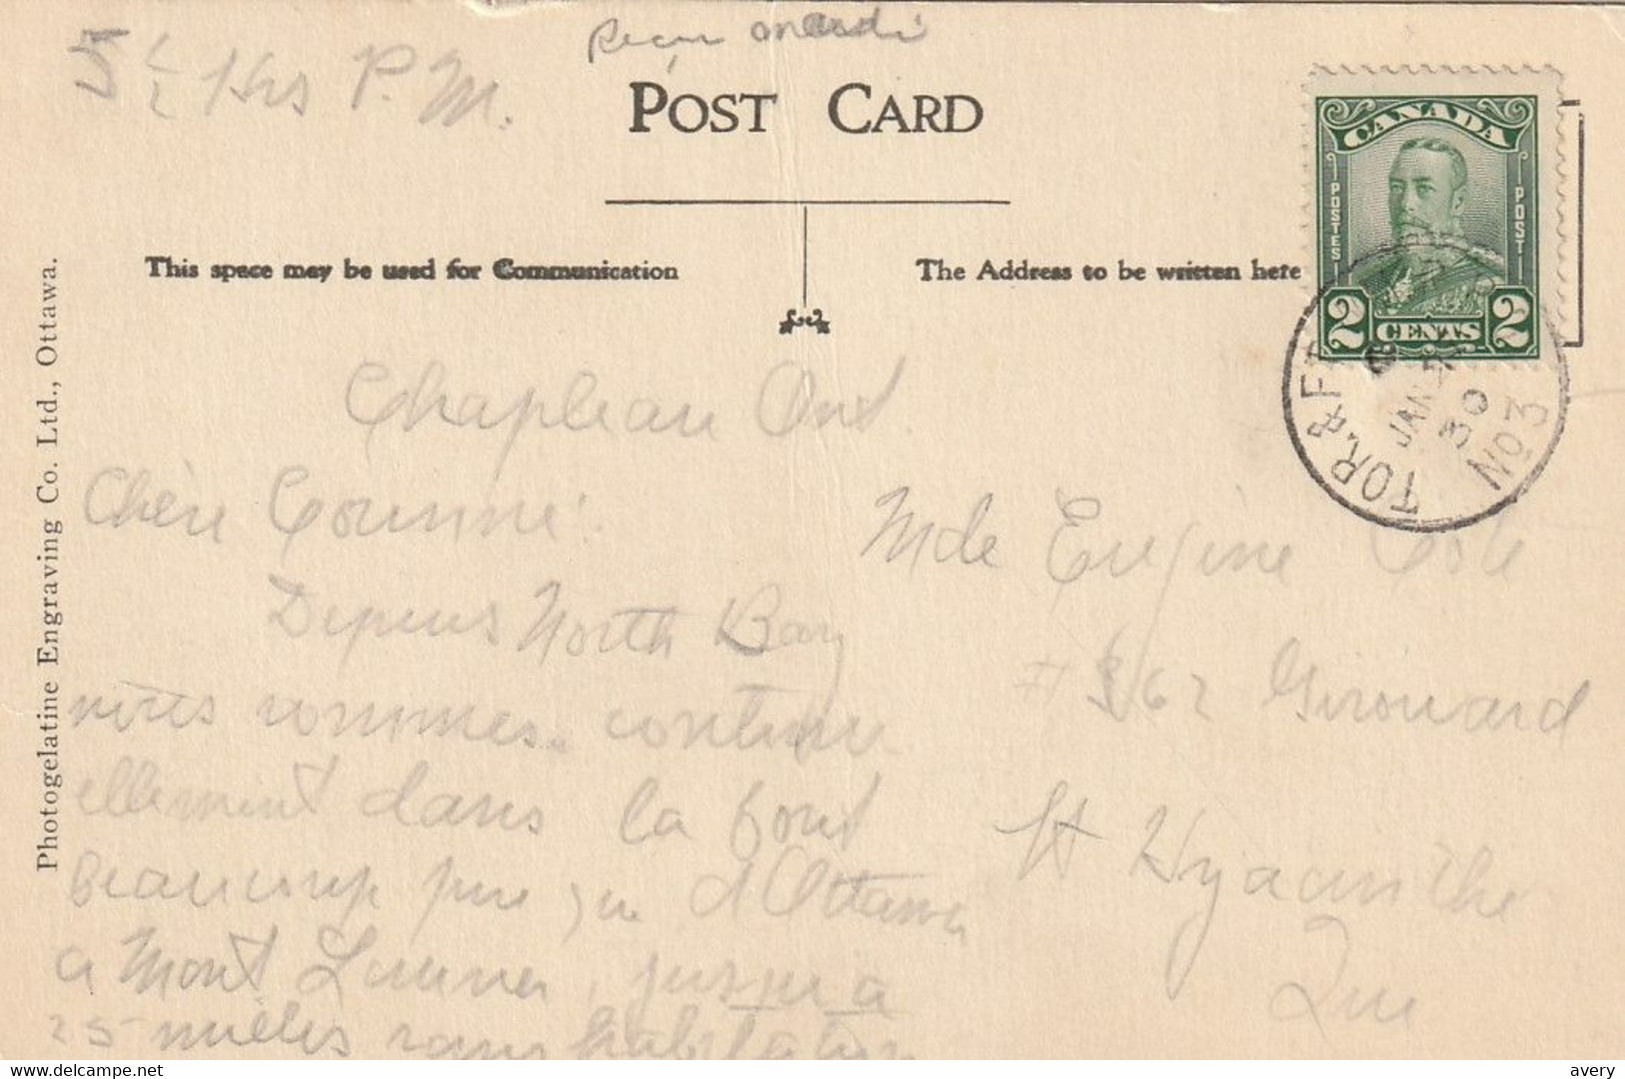 5 1/2 Hrs P.M.
Reçu mardi
POST CARD
This space may be used for Communication
The Address to be written here
CANADA
POSTES
POST
2 CENTS 2
TOR. & FT
JAN
30
No 3
Photogelatine Engraving Co. Ltd., Ottawa.
Chapleau Ont.
Chère Corinne:
Depuis North Bay
nous sommes continu
ellement dans la forêt
Beaucoup pire que d'Ottawa
a Mont Laurier, jusqu'a
25 milles sans habitation
Mde Eugène
# 362 Girouard
St Hyacinthe
Que
delcampe.net
avery